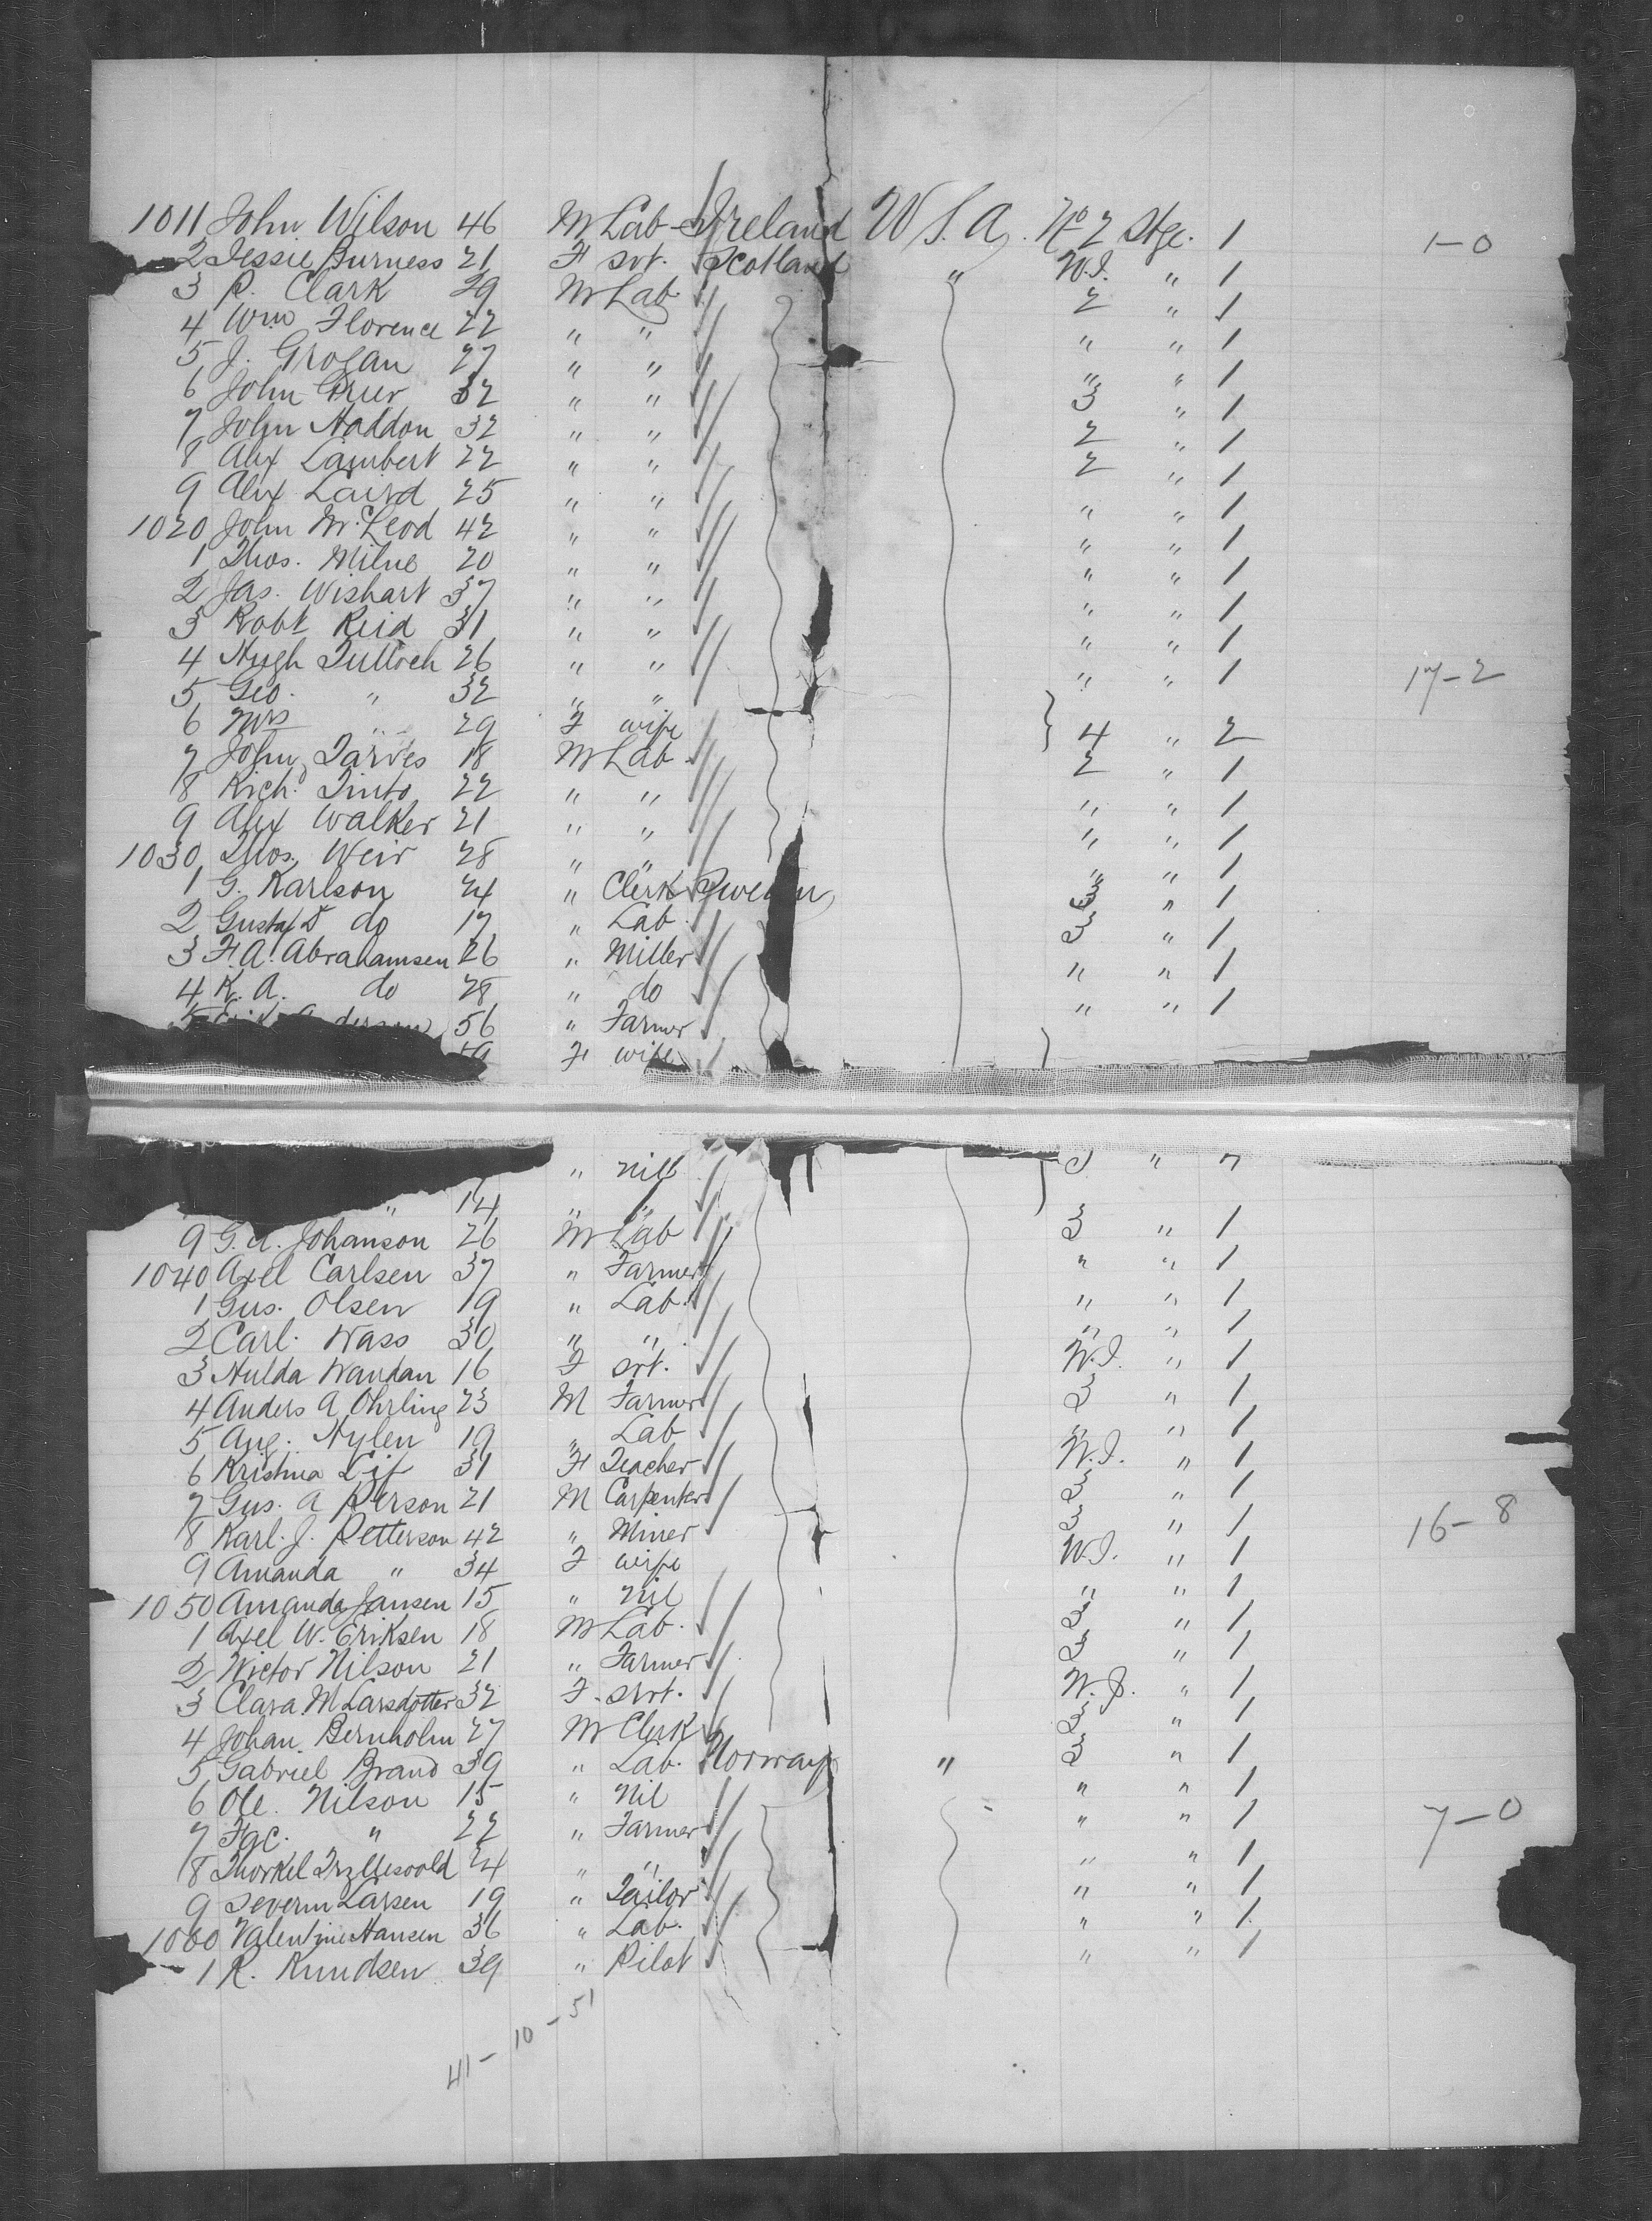 1011 John Wilson 46 M Lab Ireland U S. A. No 2 Stge. 1 1-0
2 Jessie Burness 21 F svt. Scotland " W.I. " 1
3 P. Clark 29 M Lab 2 " 1
4 Wm Florence 22 " " " " 1
5 J. Grogan 27 " " " " 1
6 John Grier 32 " " 3 " 1
7 John Haddon 32 " " 2 " 1
8 Alex Lambert 22 " " 2 " 1
9 Alex Laird 25 " " " " 1
1020 John McLeod 42 " " " " 1
1 Thos. Milne 20 " " " " 1
2 Jas. Wishart 37 " " " " 1
3 Robt Reid 31 " " " " 1
4 Hugh Tulloch 26 " " " " 1 17-2
5 Geo. " 32 " "
6 Mrs " 29 F wife } 4 " 2
7 John Tarves 18 M Lab 2 " 1
8 Richd Tinto 22 " " " " 1
9 Alex Walker 21 " " " " 1
1030 Thos. Weir 28 " " " " 1
1 G. Karlson 24 " Clerk Sweden 3 " 1
2 Gustaf do 17 " Lab 3 " 1
3 F. A. Abrahamsen 26 " Miller " " 1
4 K. A. do 28 " do " " 1
5 56 " Farmer
F wife
" nil "
" 14 " "
9 G. A. Johanson 26 M Lab 3 " 1
1040 Axel Carlsen 37 " Farmer " " 1
1 Gus. Olsen 19 " Lab. " " 1
2 Carl. Wass 30 " " " " 1
3 Hulda 16 F svt. W.I. " 1
4 Anders A Ohrling 23 M Farmer 3 " 1
5 Aug. Nylen 19 " Lab " " 1
6 Kristina 31 F Teacher W.I. " 1
7 Gus. A Person 21 M Carpenter 3 " 1
8 Karl. J. Petterson 42 " Miner 3 " 1 16-8
9 Amanda " 34 F wife W.I. " 1
1050 Amanda Jansen 15 " nil " " 1
1 Axel W. Eriksen 18 M Lab. 3 " 1
2 Wictor Nilson 21 " Farmer 3 " 1
3 Clara M Larsdotter 32 F. svt. W.I. " 1
4 Johan Bernholm 27 M Clerk 3 " 1
5 Gabriel Brand 39 " Lab. Norway " 3 " 1
6 Ole. Nilson 15 " Nil " " 1
7 " 22 " Farmer " " 1 7-0
8 Thorkel 24 " " " " 1
9 Severin Larsen 19 " Tailor " " 1
1060 Valentine Hansen 36 " Lab. " " 1
1 K. Knudsen 39 " Pilot " " 1
41-10-51